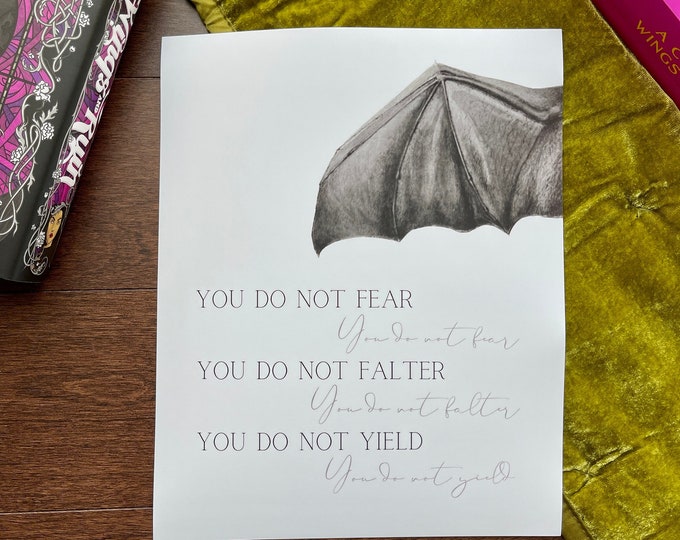 Wings and Ruin
A C
WINGS
YOU DO NOT FEAR
You do not fear
YOU DO NOT FALTER
You do not falter
YOU DO NOT YIELD
You do not yield